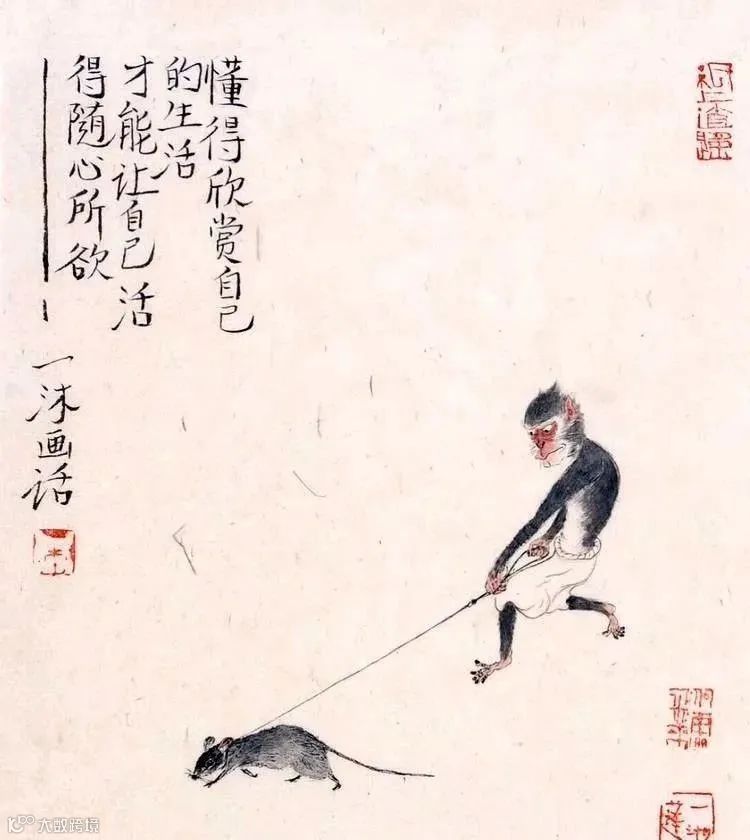 懂得欣赏自己
的生活
才能让自己活
得随心所欲
一沐画话
大数跨境